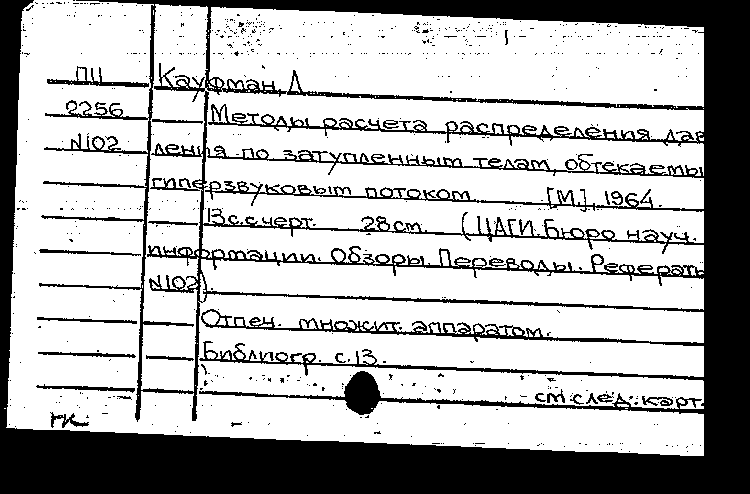 ПЦ Кауфман, Л
2256 Методы расчета распределения дав
N102 ления по затупленным телам, обтекаемы
гиперзвуковым потоком [М.], 1964.
13с.с черт. 28см. (ЦАГИ. Бюро науч.
информации. Обзоры. Переводы. Рефераты
N102).
Отпеч. множит. аппаратом.
Библиогр. с.13.
см. след. карт.